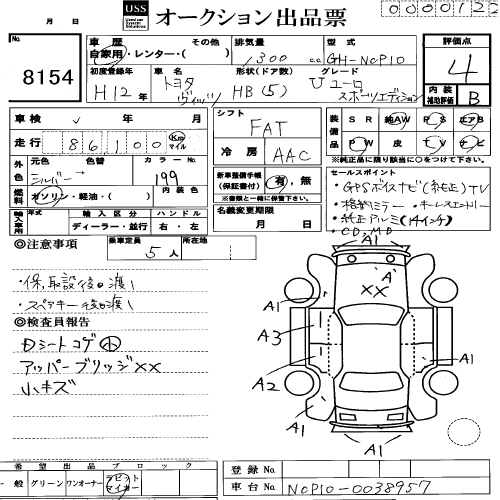 USS オークション出品票
月 日
0000122
No. 8154
車歴 その他
自家用・レンター・( )
排気量 1300 cc
型式 GH-NCP10
評価点 4
初度登録年 H12 年
車名 トヨタ ヴィッツ
形状(ドア数) HB(5)
グレード U ユーロスポーツエディション
内装補助評価 B
車検 年 月
走行 86,100 Km マイル
シフト FAT
冷房 AAC
装備品 SR 純AW PS エアB
PW 皮 TV ナビ
※純正品に限り該当に○をつけて下さい。
外色 元色 シルバー 色替
カラーNo. 199
内装色
燃料 ガソリン・軽油・( )
新車整備手帳(保証書付) 有・無
※書類と一緒に保管下さい。
セールスポイント
・GPSボイスナビ(純正)TV
・格納ミラー ・キーレスエントリー
・純正アルミ(14インチ)
・CD,MD
輸入車用 年式 輸入区分 ハンドル
ディーラー・並行 右・左
名義変更期限
月 日
◎注意事項
乗車定員 5人
所在地
・保,取設後日渡し
・スペアキー後日渡し
◎検査員報告
Dシートコゲ小
アッパーブリッジXX
小キズ
A1
A
XX
A1 A1
A3
A2 A1
A1
A1 A1
希望出品ブロック
一般 グリーン ワンオーナー ラビットマイカー
登録No.
車台No. NCP10-0038957